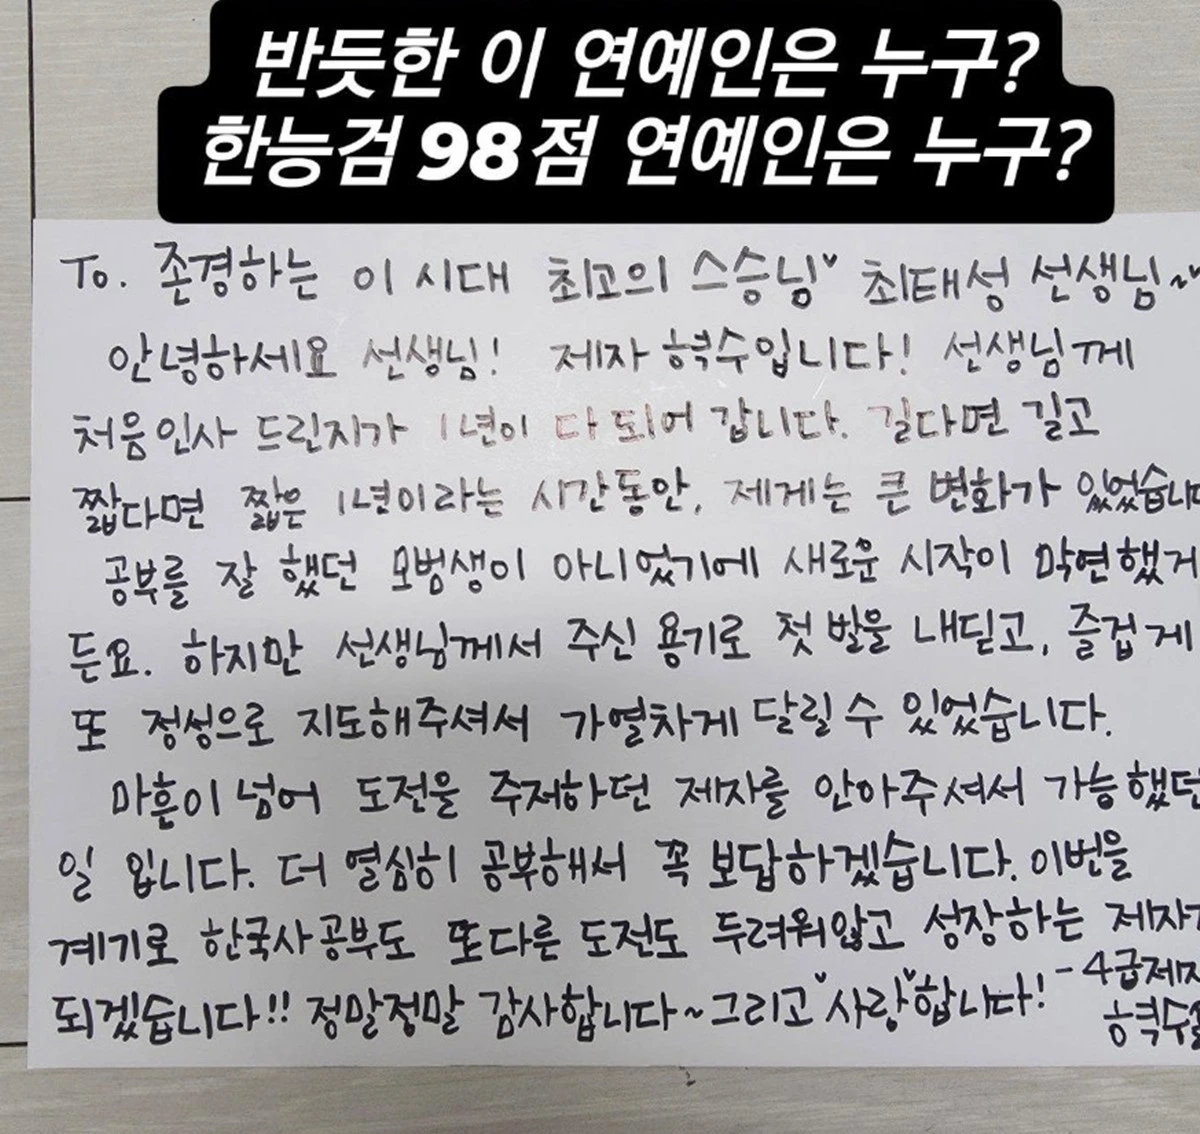 반듯한 이 연예인은 누구?
한능검 98점 연예인은 누구?
To. 존경하는 이 시대 최고의 스승님♥ 최태성 선생님~♥
안녕하세요 선생님! 제자 혁수입니다! 선생님께
처음인사 드린지가 1년이 다 되어 갑니다. 길다면 길고
짧다면 짧은 1년이라는 시간동안, 제게는 큰 변화가 있었습니다
공부를 잘 했던 모범생이 아니었기에 새로운 시작이 막연했거
든요. 하지만 선생님께서 주신 용기로 첫 발을 내딛고, 즐겁게
또 정성으로 지도해주셔서 가열차게 달릴 수 있었습니다.
마흔이 넘어 도전을 주저하던 제자를 안아주셔서 가능했던
일 입니다. 더 열심히 공부해서 꼭 보답하겠습니다. 이번을
계기로 한국사공부도 또다른 도전도 두려워않고 성장하는 제자가
되겠습니다!! 정말정말 감사합니다~그리고 ♥사랑♥합니다! -4급제자
혁수